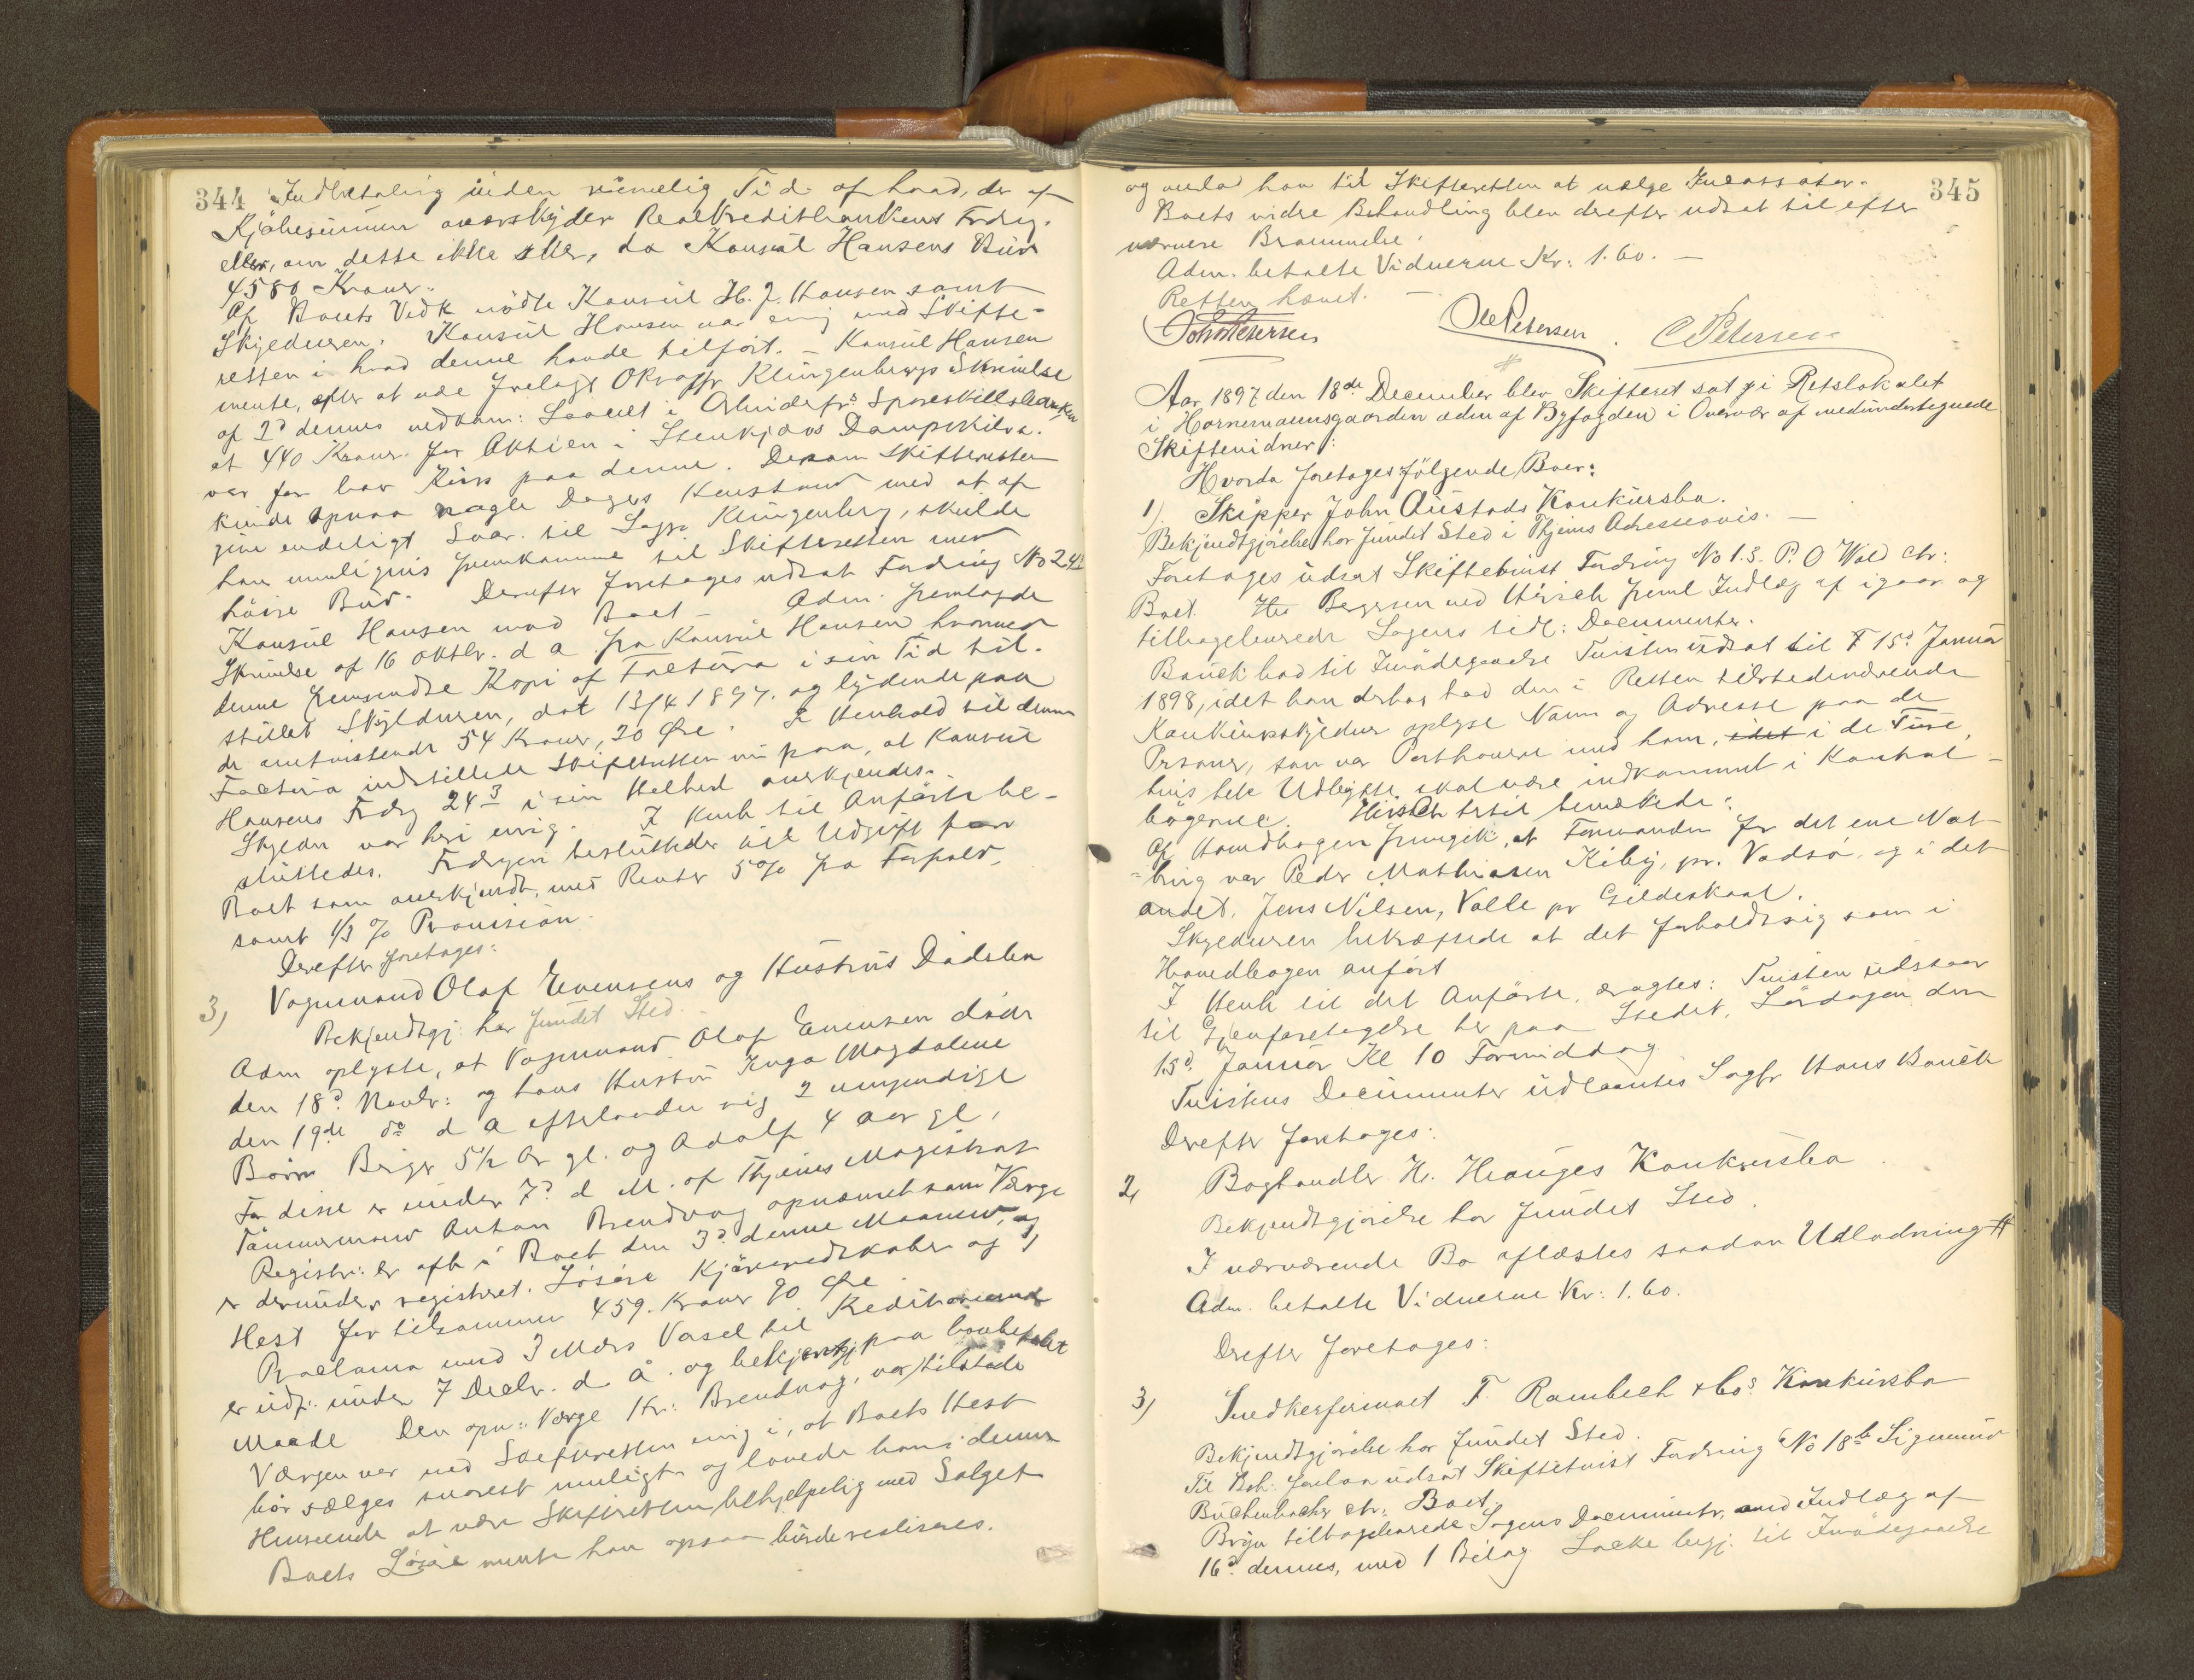 344
Indbetaling inden rimelig Tid af hvad, der af
Kjøbesummen overskyder Realkreditbankens Fordrg.
eller, om dette ikke sker, da Konsul Hansens Bud
4580 Kroner.
Af Boets Vedk mødte Konsul H. J. Hansen samt
Skyldneren. Konsul Hansen var enig med Skifte-
retten i hvad denne havde tilført. – Konsul Hansen
mente, efter at være forelagt Klingenbergs Skrivelse
af 2d dennes vedkom: Laanet i Sparskillsbanken
at 440 Kroner for Aktien i Stenkjærs Dampskibss.
var for lav Kurs paa denne. Dersom Skifteretten
kunde opnaa nogle Dages Henstand med at af
give endeligt Svar til Sagfr Klingenberg, skulde
han muligvis fremkomme til Skifteretten med
høiere Bud. Derefter foretages udsat Fordring No 24
Konsul Hansen mod Boet – Adm. fremlagde
Skrivelse af 16 Oktbr. d a fra Konsul Hansen hvormed
denne fremsendte Kopi af Factura i sin Tid til-
stillet Skyldneren, dat 13/4 1897. og lydende paa
de omtvistende 54 Kroner, 20 Øre. I Henhold til denne
Factura indstillede Skifteretten nu paa, at Konsul
Hansens Fordrg 24 3 i sin Helhed anerkjendes.
Skylder var heri enig. I Henh til Anførte be-
sluttedes. Fordrgen besluttedes til Udgift for
Boet som anerkjendt, med Renter 5% fra Forfald.
samt 1/3 % Provision.
Derefter foretages:
3) Vognmand Olaf Evensens og Hustrus Dødsbo
Bekjendtgj. har fundet Sted.
Adm oplyste, at Vognmand Olaf Evensen døde
den 18d Novbr: og hans Hustru Inga Magdalene
den 19de do d a efterlader sig 2 umyndige
Børn Birger 5½ Ar gl. og Adolf 4 aar gl.
For disse er under 7d d M. af Thjems Magistrat
Tømmermand Anton Brendvog opnævnt som Værge
Registr: er afh i Boet den 3d denne Maaned, og
er derunder registreret. Løsøre Kjøreredskaber og 1
Hest for tilsammen 459. Kroner 70 Øre
Proclama med 3 Mdrs Varsel til Kreditorerne
er udf: under 7 Decbr. d. å. og bekjentgj paa lovbefalet
Maade Den opn: Værge Hr: Brendvog, var tilstede
Værgen var med Skifteretten enig i, at Boets Hest
bør sælges snarest muligt og lovede han i denne
Henseende at være Skifteretten behjelpelig med Salget
Boets Løsøre mente han ogsaa burde realiseres.
345
og overlod han til Skifteretten at vælge Incassator.
Boets videre Behandling blev derefter udsat til efter
nærmere Berammelse.
Adm. betalte Vidnerne Kr: 1.60. –
Retten hævet. –
John Petersen Ole Petersen. C Petersen
Aar 1897 den 18de December blev Skifteret sat i Retslokalet
i Hornemannsgaarden adm af Byfogden i Overvær af medundertegnede
Skiftevidner:
Hvorda foretages følgende Boer:
1) Skipper John Austads Konkursbo.
Bekjendtgjørelse har fundet Sted i Thjems Adresseavis. –
Foretages udsat Skiftetvist Fordring No 13. P. O Wold ctr:
Boet. Hr Bergersen ved Hirsch freml Indlæg af igaar og
tilbageleverede Sagens tidl: Documenter.
Bauck bad til Imødegaaelse Tvisten udsat til 15d Januar
1898, idet han derhos bad den i Retten tilstedeværende
Konkursskylder oplyse Navn og Adresse paa de
Personer, som var Parthavere med ham, idet i de Ture,
hvis hele Udbytte skal være indkommet i Kontrol-
bøgerne. Hirsch hertil bemærkede:
Af Hovedbogen fremgik, at Formanden for det ene Not-
brug var Peder Mathiasen Kiby, pr. Vadsø, og i det
andet, Jens Nilsen, Valle pr Gildeskaal.
Skylderen bekræftede at det forholdt sig som i
Hovedbogen anført
I Henh til det Anførte, eragtes: Tvisten udstaar
til Gjenforetagelse her paa Stedet, Lørdagen den
15d Januar Kl 10 Formiddag
Tvistens Documenter udlaantes Sagfr Hans Bauck
Derefter foretages:
2, Boghandler H. Hauges Konkursbo.
Bekjendtgjørelse har fundet Sted.
I nærværende Bo oplæstes saadan Udlodning #
Adm. betalte Vidnerne Kr: 1.60.
Derefter foretages:
3) Snedkerfirmaet F. Rambech & Cos Konkursbo
Bekjendtgjørelse har fundet Sted.
Til Beh: forelaa udsat Skiftetvist Fordring No 18b Sigmund
Buchenbacher ctr. Boet.
Bryn tilbageleverede Sagens Documenter, med Indlæg af
16d dennes, med 1 Bilag Lacke begj. til Imødegaaelse